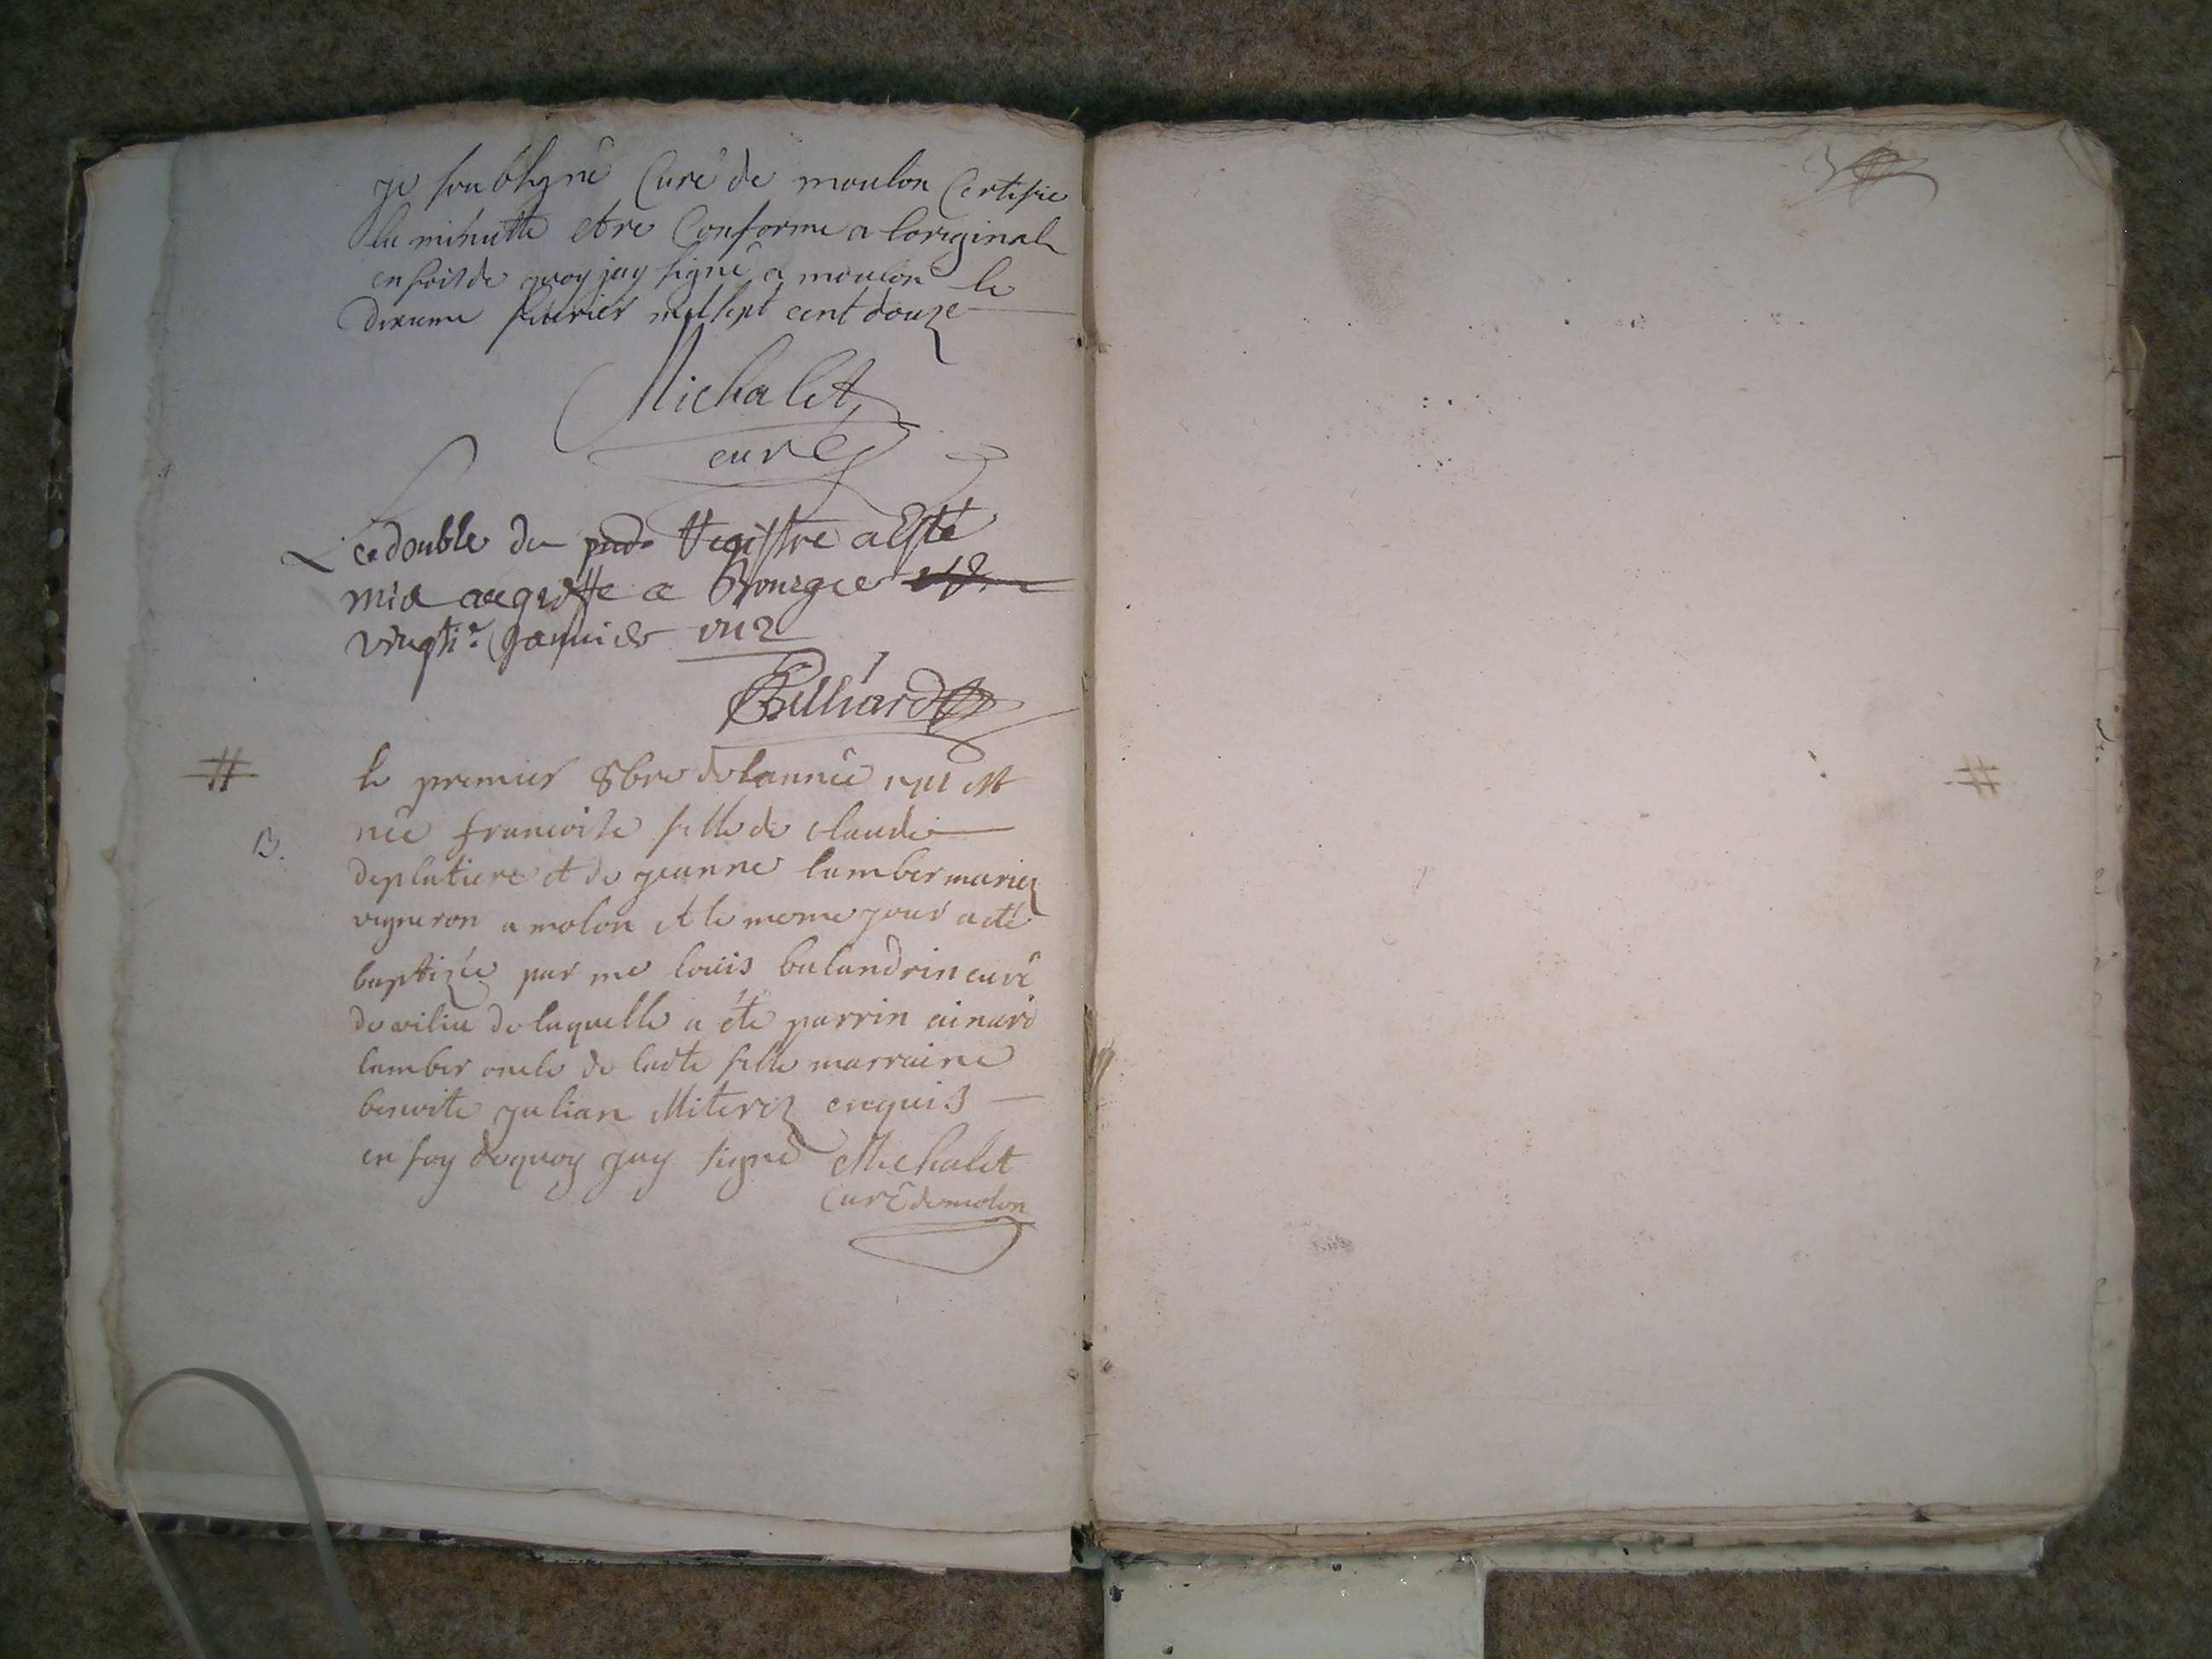 je soubsigné Curé de moulon Certifie
la minutte etre Conforme a loriginal
en foit de quoy jay signé a moulon le
dixieme fevrier mil sept cent douze
Michalet
curé
Le double du registre a Esté
mis au greffe a Bourg ce
vingti.e Janvier 1712
Billiard
# le premier 8bre de lannée 1711 est
B. née francoise fille de claude
deplatiere et de jeanne lamber mariez
vigneron a molon et le meme jour a eté
baptizée par me loüis balandrin curé
de vilieu de laquelle a éte parrin ainard
lamber oncle de ladte fille marraine
benoite julian illiterez enquis
en foy dequoy jay signé Michalet
Curé de molon
#